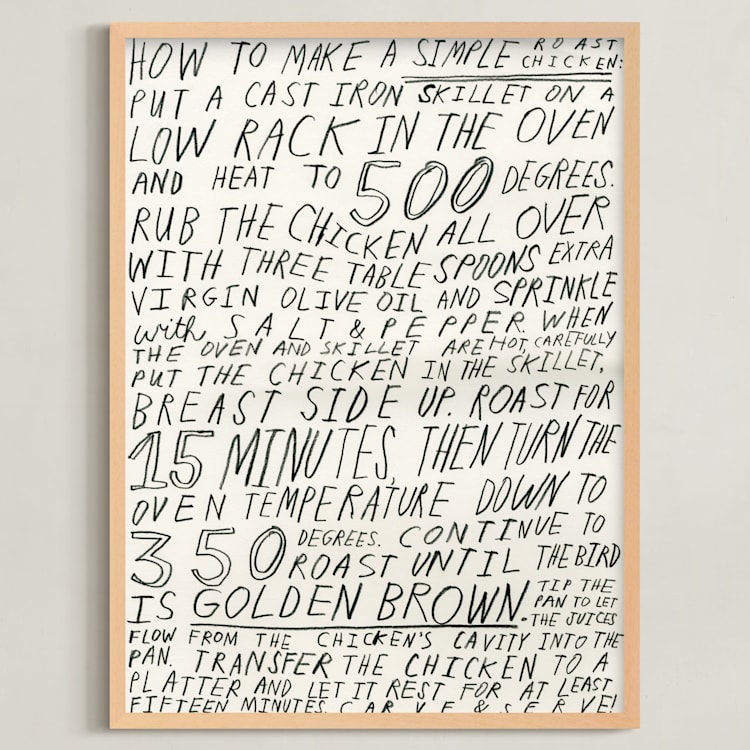 HOW TO MAKE A SIMPLE ROAST CHICKEN:
PUT A CAST IRON SKILLET ON A
LOW RACK IN THE OVEN
AND HEAT TO 500 DEGREES.
RUB THE CHICKEN ALL OVER
WITH THREE TABLESPOONS EXTRA
VIRGIN OLIVE OIL AND SPRINKLE
with SALT & PEPPER. WHEN
THE OVEN AND SKILLET ARE HOT, CAREFULLY
PUT THE CHICKEN IN THE SKILLET,
BREAST SIDE UP. ROAST FOR
15 MINUTES, THEN TURN THE
OVEN TEMPERATURE DOWN TO
350 DEGREES. CONTINUE TO
ROAST UNTIL THE BIRD
IS GOLDEN BROWN. TIP THE
PAN TO LET
THE JUICES
FLOW FROM THE CHICKEN'S CAVITY INTO THE
PAN. TRANSFER THE CHICKEN TO A
PLATTER AND LET IT REST FOR AT LEAST
FIFTEEN MINUTES. CARVE & SERVE!